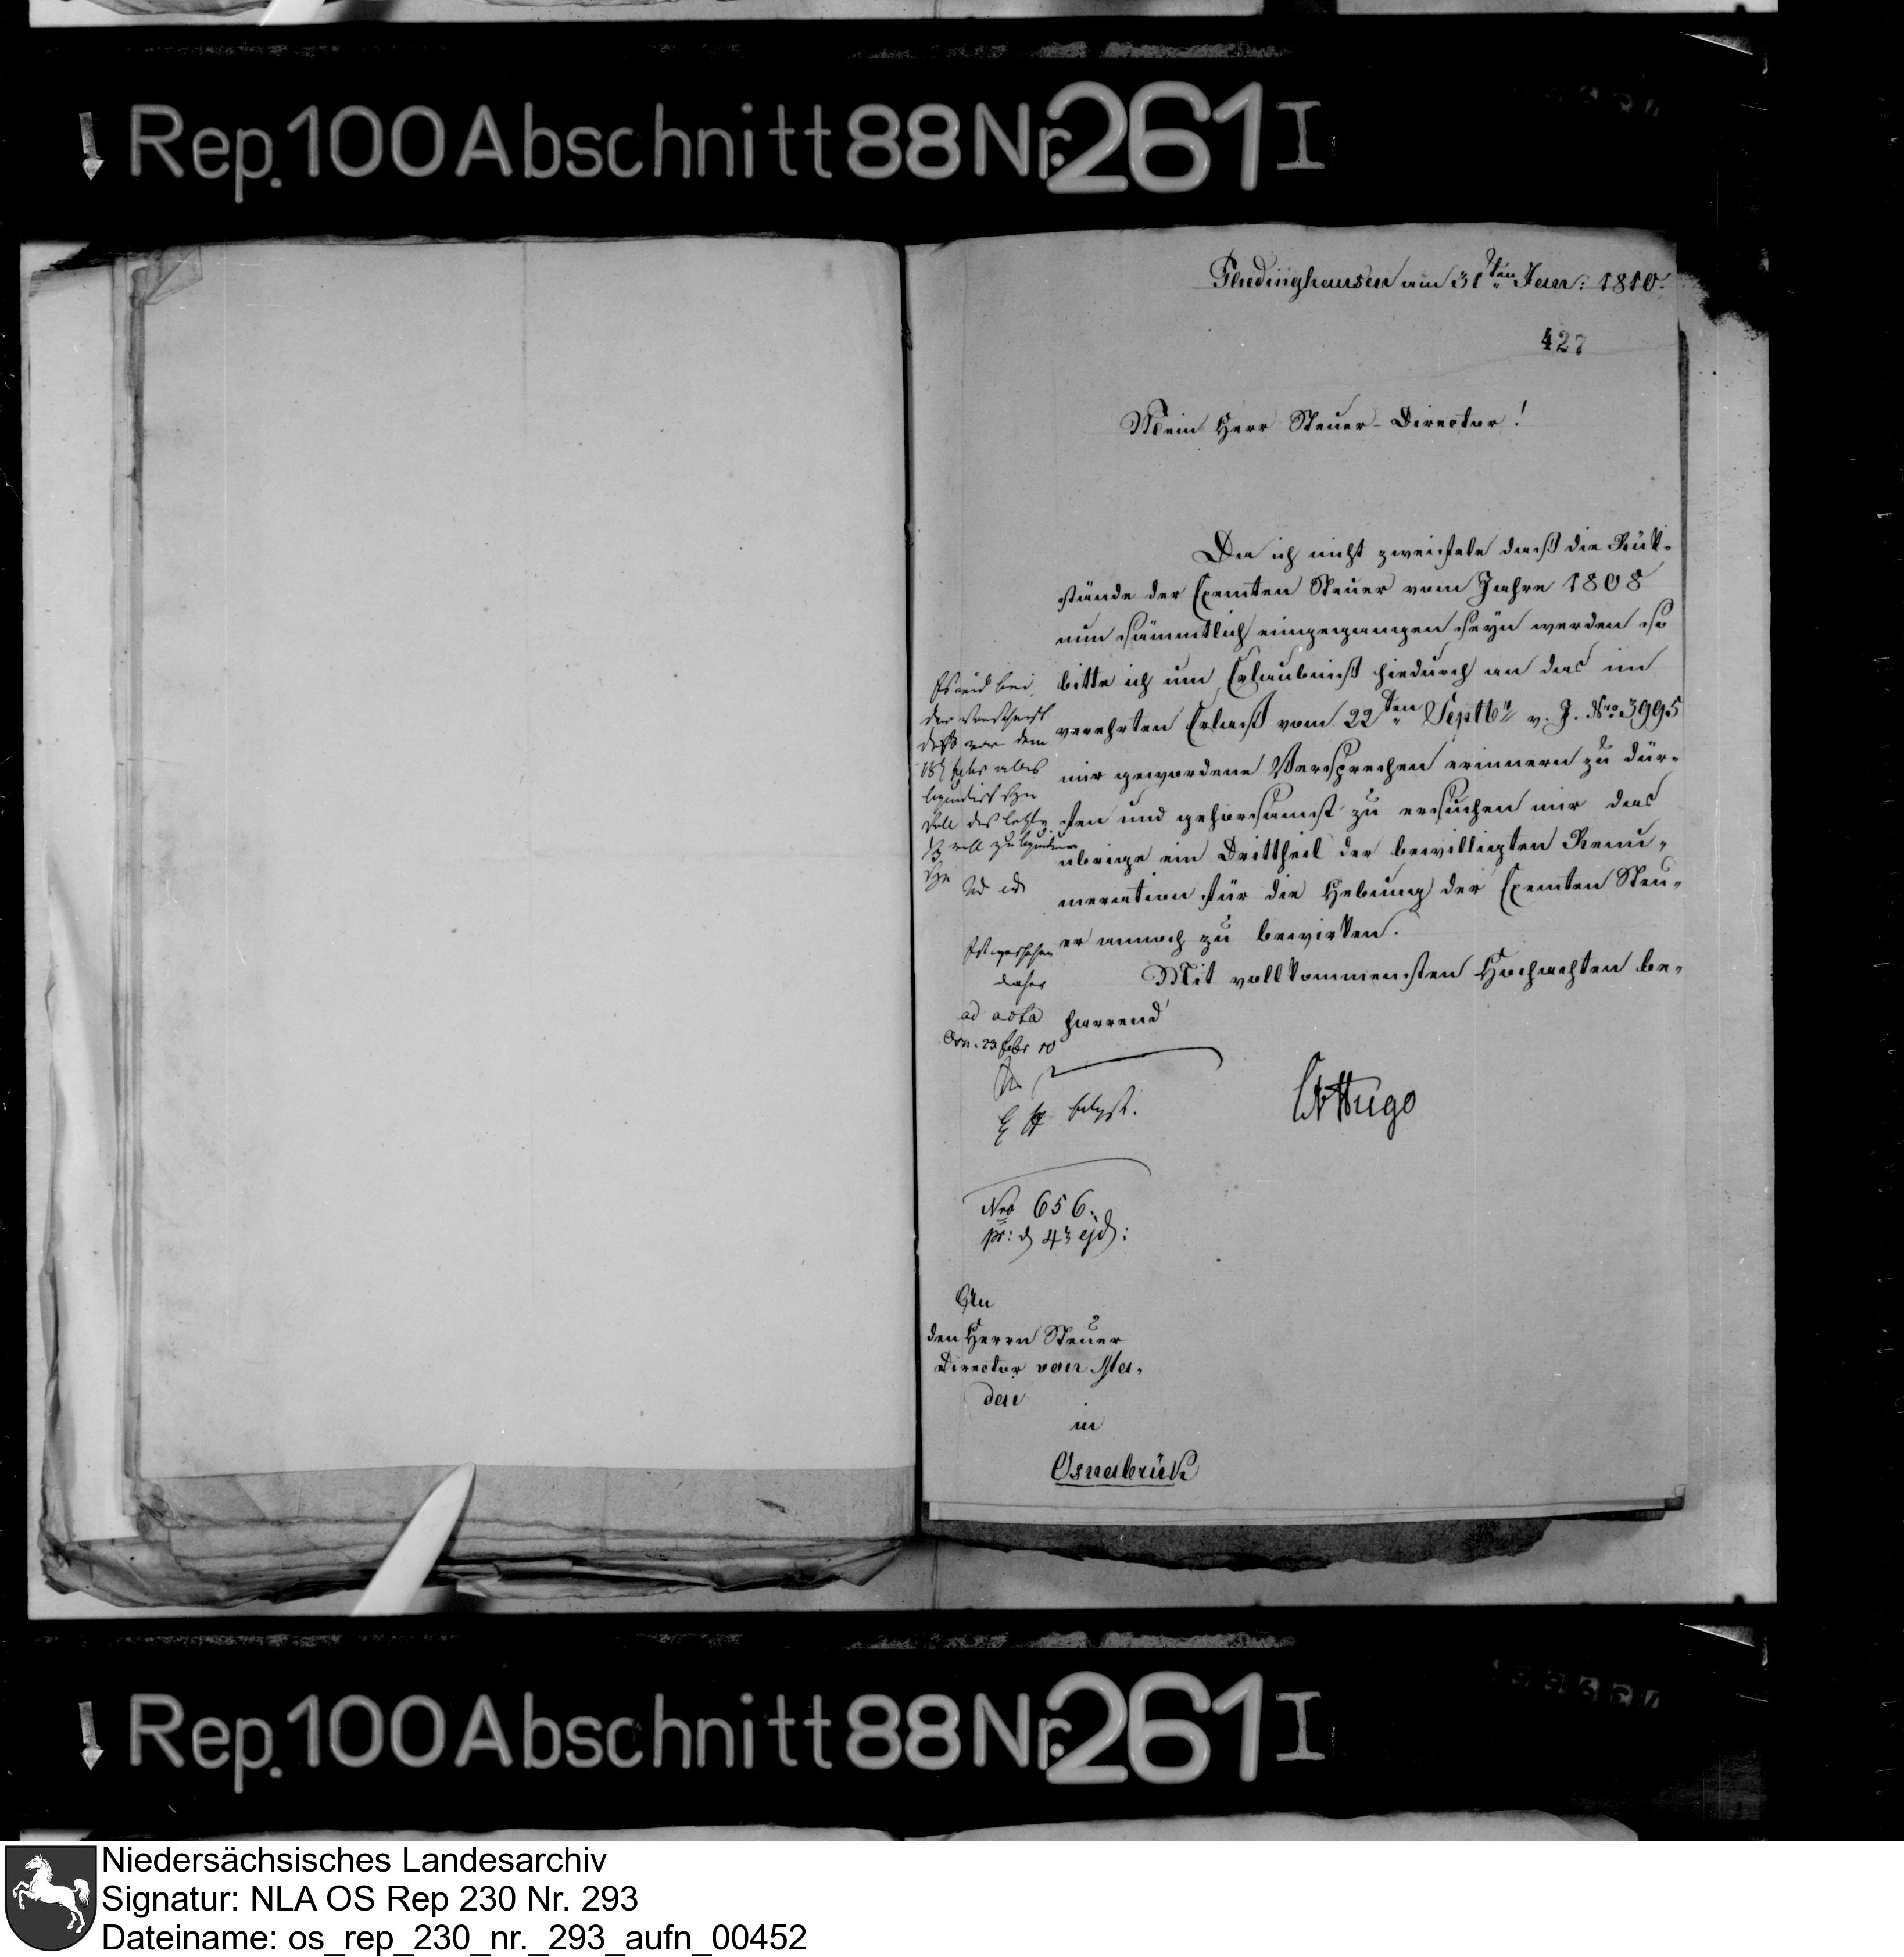 Rep. 100 Abschnitt 88 Nr. 261 I
Thedinghausen am 31ten Jan: 1810.
427
Mein Herr Steuer-Director!
Da ich nicht zweifele daß die Rük-
stände der Exemten Steuer vom Jahre 1808
nun sämmtlich eingegangen seyn werden so
bitte ich um Erlaubniß hiedurch an das im
verehrten Erlaß vom 22ten Septbr v. J. Nro 3995
mir gewordene Versprechen erinnern zu dür-
fen und gehorsamst zu ersuchen mir das
übrige ein Drittheil der bewilligten Remu-
neration für die Hebung der Exemten Steu-
er annoch zu bewirken.
Mit vollkommensten Hochachten be-
harrend
Hugo
bei
daß vor dem
alles
des letzte
Ist geschehen
daher
ad acta
23 Febr 10
Nro 656.
pr: d 43 ejd:
An
den Herrn Steuer
Director von Sta-
den
in
Osnabrük
Rep. 100 Abschnitt 88 Nr. 261 I
Niedersächsisches Landesarchiv
Signatur: NLA OS Rep 230 Nr. 293
Dateiname: os_rep_230_nr._293_aufn_00452